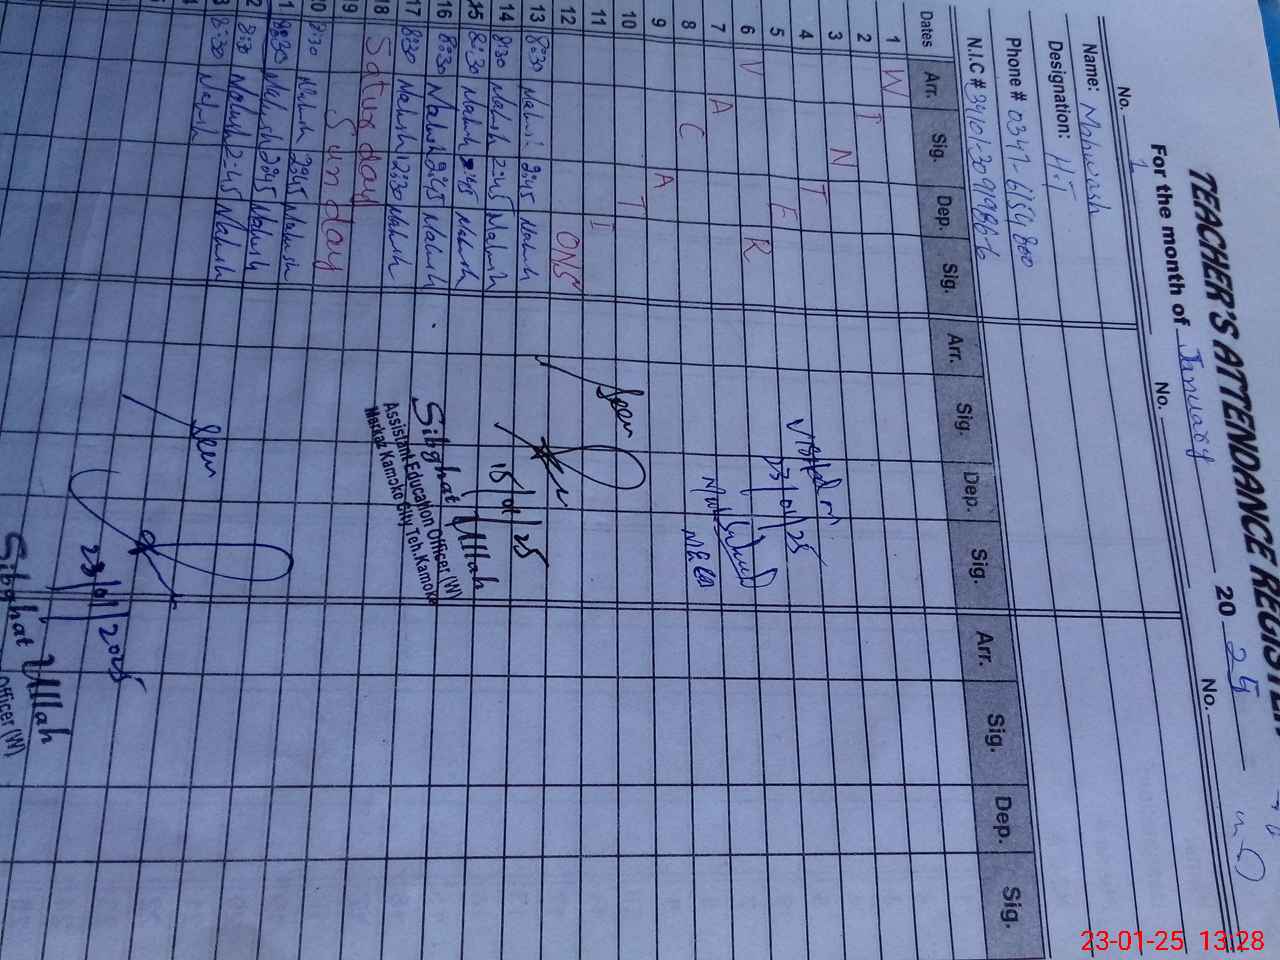 TEACHER'S ATTENDANCE REGISTER
For the month of January 2025
No. 1 No. No.
Name: Mahwash
Designation: H.T
Phone # 0347-6154800
N.I.C #
Dates Arr. Sig. Dep. Sig. Arr. Sig. Dep. Sig. Arr. Sig. Dep. Sig.
1 W
2 I
3 N
4 T
5 E
6 V R
7 A
8 C
9 A
10 T
11 I
12 ONS
13 8:30 Mahwish 2:45 Mahwish
14 8:30 Mahwish 2:45 Mahwish
15 8:30 Mahwish 2:45 Mahwish
16 8:30 Mahwish 2:45 Mahwish
17 8:30 Mahwish 12:30 Mahwish
18 Saturday
19 Sunday
20 8:30 Mahwish 2:45 Mahwish
1 8:30 Mahwish 2:45 Mahwish
2 8:30 Mahwish 2:45 Mahwish
3 8:30 Mahwish
Visited on
13/01/25
Seen
15/01/25
Sibghat Ullah
Assistant Education Officer (W)
Markaz Kamoke City Teh. Kamoke
Seen
23/01/2025
Sibghat Ullah
Officer (W)
23-01-25 13:28